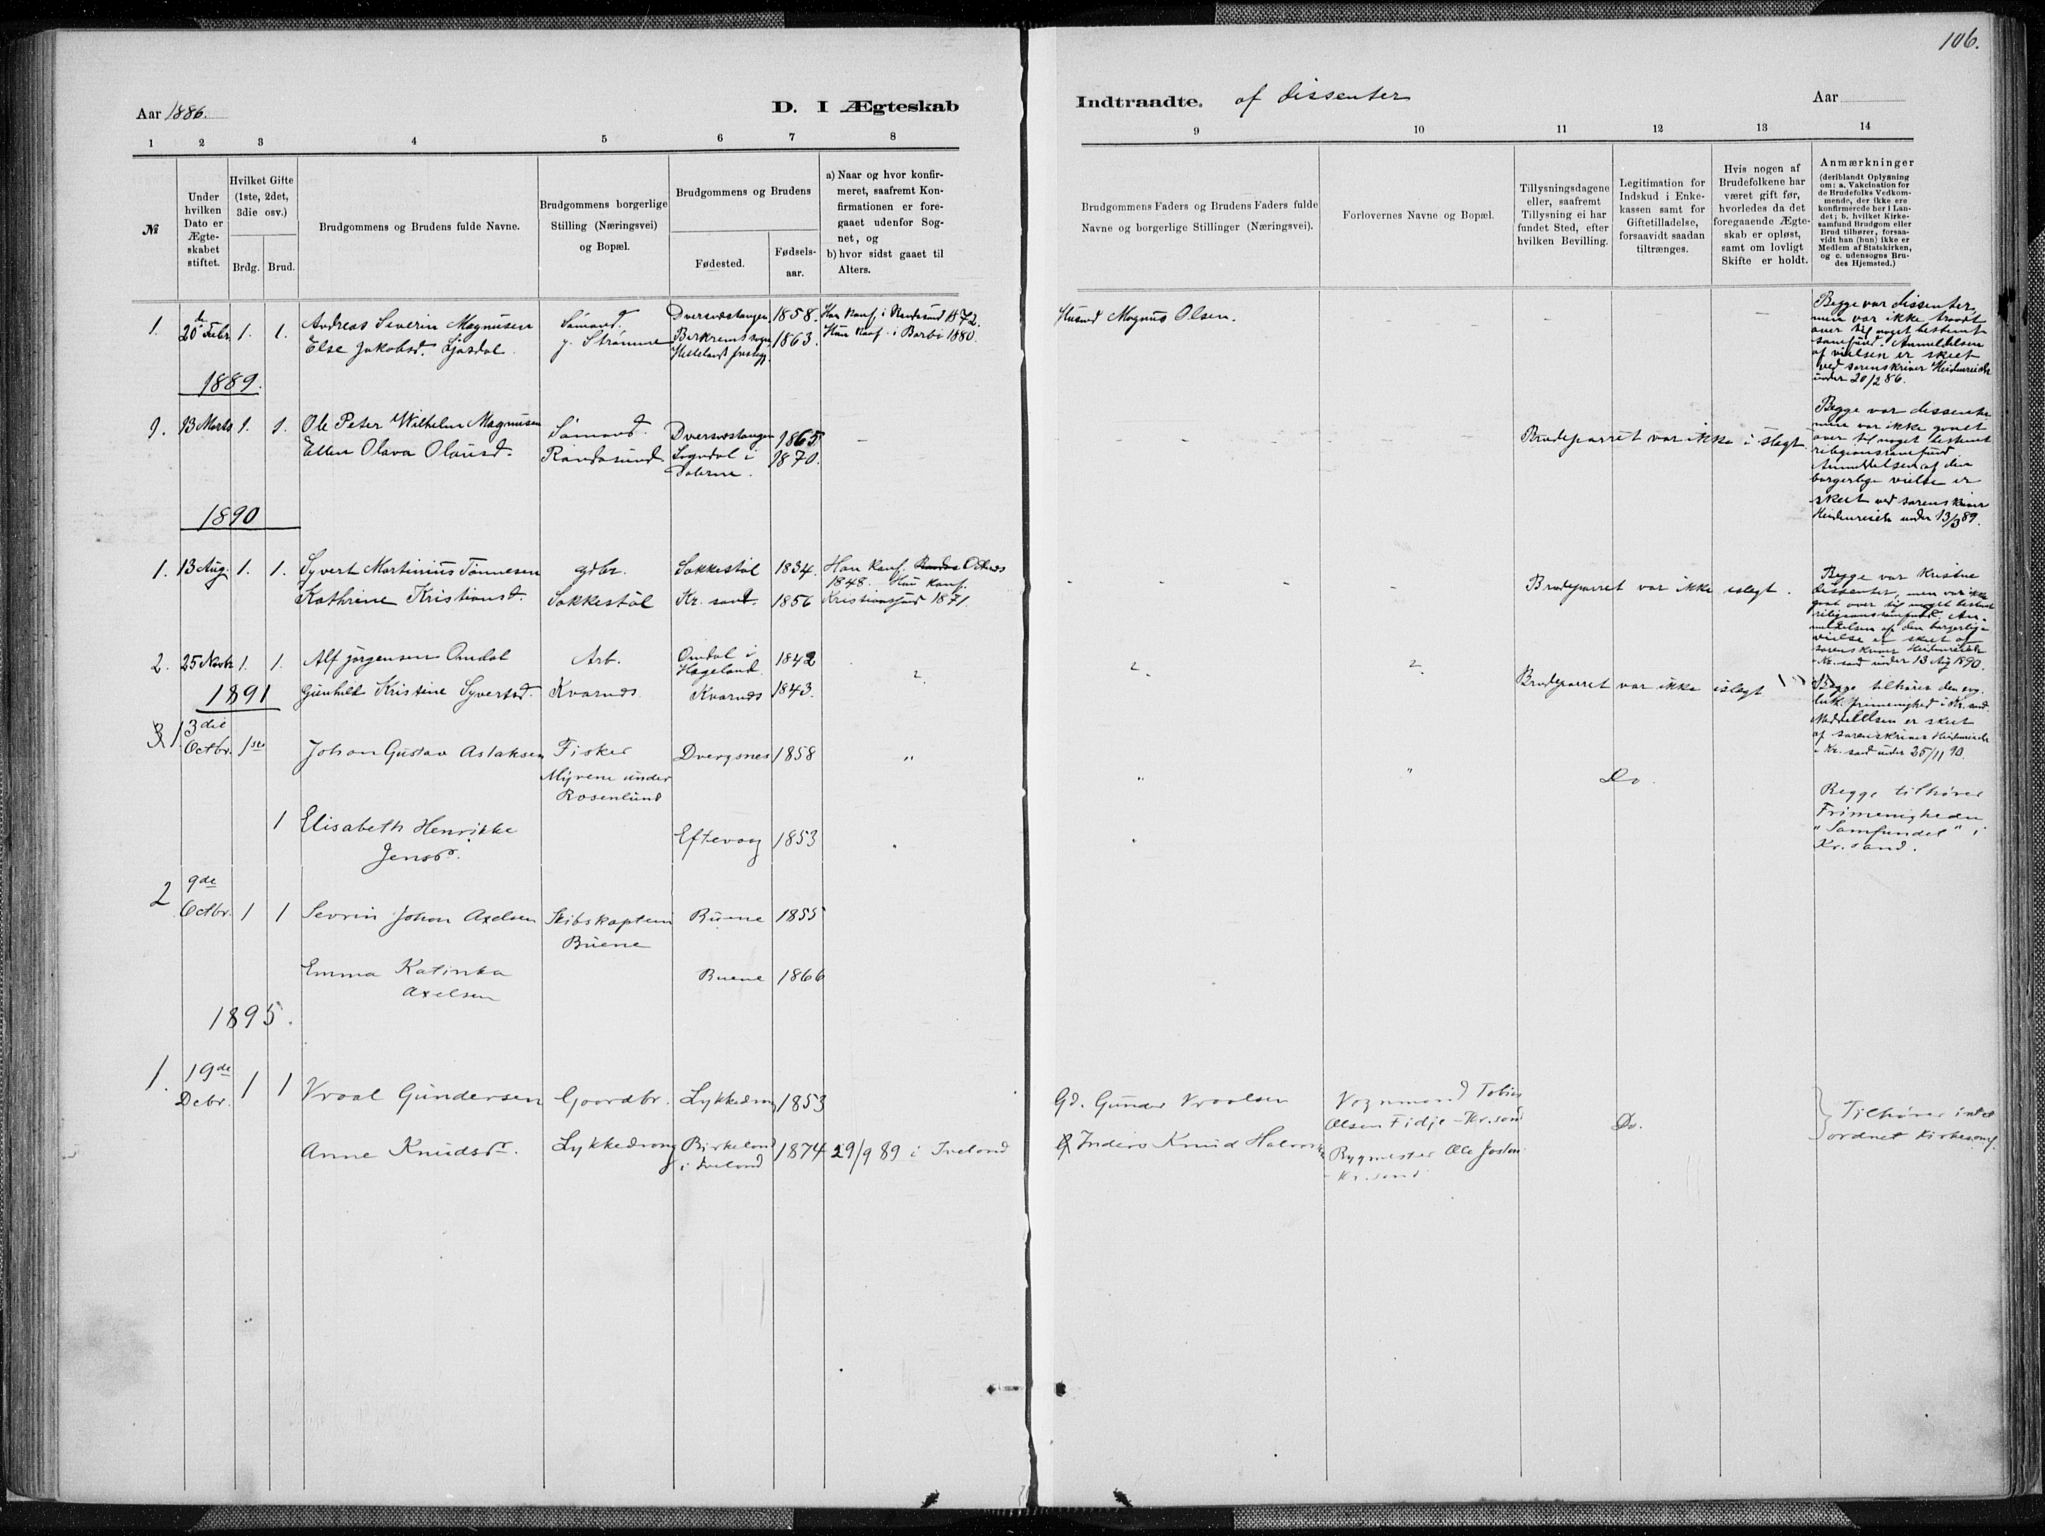 106.
Aar 1886.
D. I Ægteskab
Indtraadte. af dissenter
Aar
1 2 3 4 5 6 7 8 9 10 11 12 13 14
№
Under hvilken Dato er Ægteskabet stiftet.
Hvilket Gifte (1ste, 2det, 3die osv.)
Brdg. Brud.
Brudgommens og Brudens fulde Navne.
Brudgommens borgerlige Stilling (Næringsvei) og Bopæl.
Brudgommens og Brudens
Fødested.
Fødselsaar.
a) Naar og hvor konfirmeret, saafremt Konfirmationen er foregaaet udenfor Sognet, og
b) hvor sidst gaaet til Alters.
Brudgommens Faders og Brudens Faders fulde Navne og borgerlige Stillinger (Næringsvei).
Forlovernes Navne og Bopæl.
Tillysningsdagene eller, saafremt Tillysning ei har fundet Sted, efter hvilken Bevilling.
Legitimation for Indskud i Enkekassen samt for Giftetilladelse, forsaavidt saadan tiltrænges.
Hvis nogen af Brudefolkene har været gift før, hvorledes da det foregaaende Ægteskab er opløst, samt om lovligt Skifte er holdt.
Anmærkninger
(deriblandt Oplysning om: a. Vakcination for de Brudefolks Vedkommende, der ikke ere konfirmerede her i Landet; b. hvilket Kirkesamfund Brudgom eller Brud tilhører, forsaavidt han (hun) ikke er Medlem af Statskirken, og c. udensogns Brudes Hjemsted.)
1. 20de Febr 1. 1. Andreas Severin Magnusen Sømand. Dversnestangen 1858. Han konf. i Randesund 1872.
Else Jakobsd. g. Strømme Birkrems sogn Hetlelands prstgj. 1863. Hun konf. i Barbo 1880.
Husmd Magnus Olsen.
Begge var dissenter, men var ikke traadt over til noget bestemt samfund. Anmeldelsen af vielsen er skeet ved sorenskriver Heidenreich under 20/2 86.
1889.
1. 13 Marts 1. 1. Ole Peter Wilhelm Magnusen Sømand. Dversnestangen 1865
Ellen Olava Olausd. Randøsund Sogndal i Dalerne. 1870.
Brudeparret var ikke i slegt.
Begge var dissenter men var ikke gaaet over til noget bestemt religionssamfund Anmeldelsen af den borgerlige vielse er skeet ved sorenskriver Heidenreich under 13/3 89.
1890
1. 13 Aug. 1. 1. Syvert Martinius Tønnesen gdbr. Søkkestøl 1834. Han konf. Oddernes 1848. Hun konf.
Kathrine Kristiansd. Søkkestøl Kr. sand. 1856 Kristiansand 1871.
Brudeparret var ikke islegt.
Begge var Kristne dissenter, men var ikke gaat over til noget bestemt religionssamfund. Anmeldelsen af den borgerlige vielse er skeet af sorenskriver Heidenreich Kr. sad under 13 Aug 1890.
2. 25 Novbr 1. 1. Alf Jørgensen Omdal Arb. Omdal i Hægeland. 1842
Gunhild Kristine Syvertsd. Kvarnes. Kvarnes 1843.
Brudeparret var ikke islegt
Begge tilhører den evg. luth. frimenighed i Kr.sand. Meddelelsen er skeet af sorenskriver Heidenreich i Kr. sad under 25/11 90.
1891
1. 3die Octbr. 1ste Johan Gustav Aslaksen Fisker Dvergsnes 1858 "
Myrene under Rosenlund
" " Do.
1 Elisabeth Henrikke Jensdr. Eftevaag 1853
Begge tilhører Frimenigheden "Samfundet" i Kr.sand.
2 9de Octbr. 1 1 Sevrin Johan Axelsen Skibskaptein Buene Buene 1855
Emma Katinka Axelsen Buene 1866
1895.
1. 19de Dcbr. 1 1 Vraal Gundersen Gaardbr. Lykkedrang 1853
Gd. Gunder Vraalsen
Vognmand Tobias Olsen Fidje - Kr.sand
Do.
Tilhører intet ordnet kirkesamf.
Anne Knudsdr. Lykkedrang Birkeland i Iveland 1874 29/9 89 i Iveland
Inders Knud Halvorsen
Bygmester Ole Josten
- Kr.sand